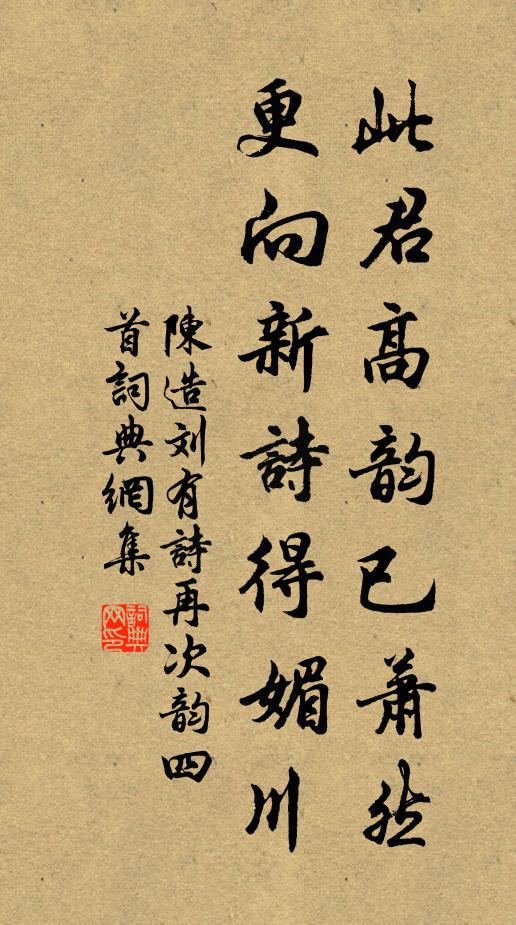 此君高韵已蕭然
更向新詩得媚川
陳造刘有詩再次韵四
首詞典網集
詞典網印